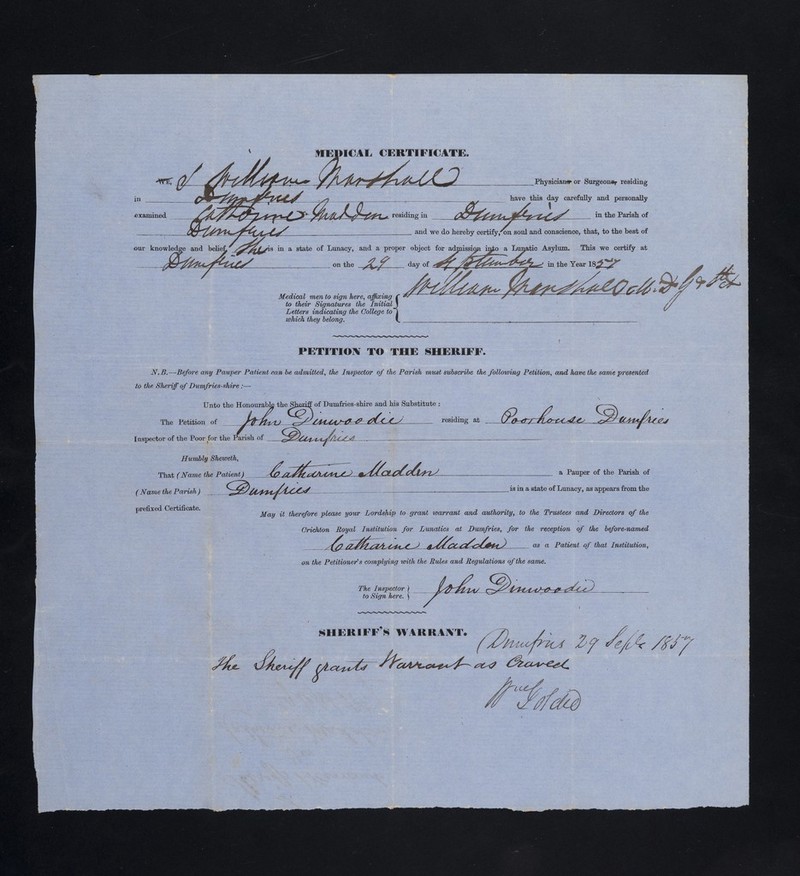 MEDICAL CERTIFICATE.
We, I William Marshall Physicians or Surgeons, residing
in Dumfries have this day carefully and personally
examined Catharine Madden residing in Dumfries in the Parish of
Dumfries and we do hereby certify, on soul and conscience, that, to the best of
our knowledge and belief, She is in a state of Lunacy, and a proper object for admission into a Lunatic Asylum. This we certify at
Dumfries on the 29 day of September in the Year 1857
Medical men to sign here, affixing
to their Signatures the Initial
Letters indicating the College to
which they belong.
William Marshall M.D.
PETITION TO THE SHERIFF.
N.B.—Before any Pauper Patient can be admitted, the Inspector of the Parish must subscribe the following Petition, and have the same presented
to the Sheriff of Dumfries-shire:—
Unto the Honourable the Sheriff of Dumfries-shire and his Substitute:
The Petition of John Dinwoodie residing at Poorhouse Dumfries
Inspector of the Poor for the Parish of Dumfries
Humbly Sheweth,
That (Name the Patient) Catharine Madden a Pauper of the Parish of
(Name the Parish) Dumfries is in a state of Lunacy, as appears from the
prefixed Certificate.
May it therefore please your Lordship to grant warrant and authority, to the Trustees and Directors of the
Crichton Royal Institution for Lunatics at Dumfries, for the reception of the before-named
Catharine Madden as a Patient of that Institution,
on the Petitioner's complying with the Rules and Regulations of the same.
The Inspector
to Sign here.
John Dinwoodie
SHERIFF'S WARRANT.
Dumfries 29 Septr 1857
The Sheriff grants Warrant as Craved
Wm Goldie